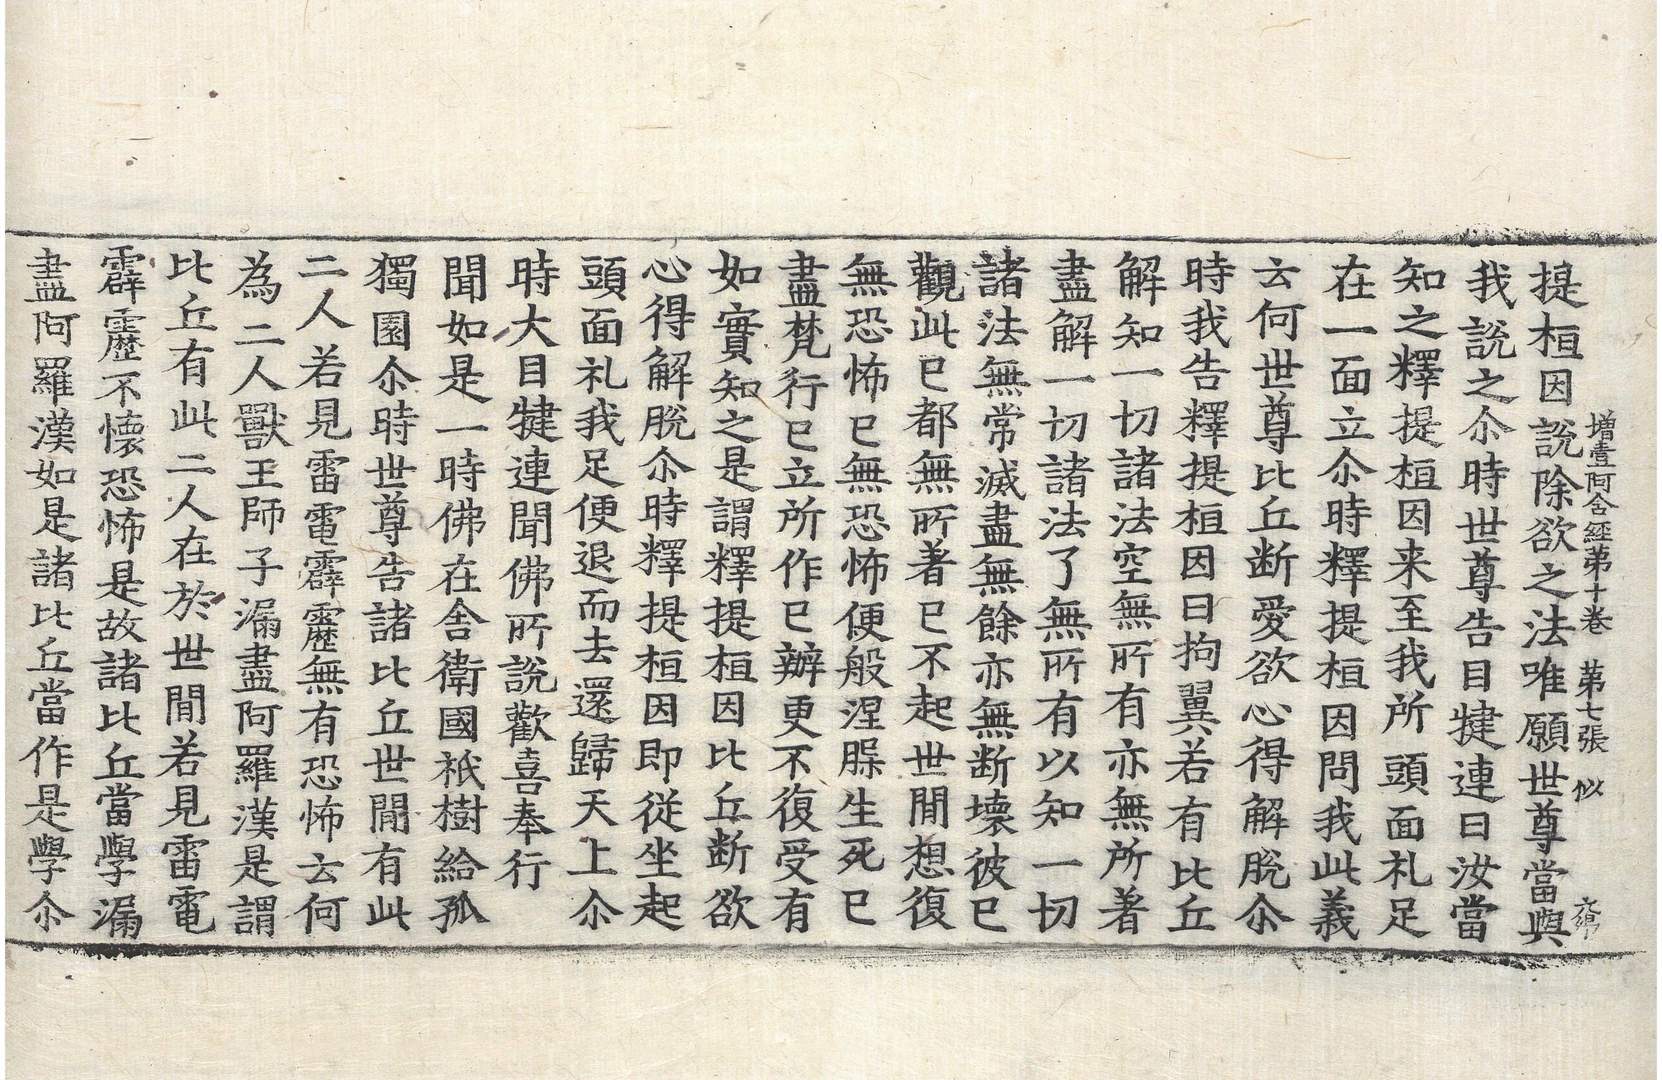 增壹阿含經第十卷 第七張 似
提桓因說除欲之法唯願世尊當與
我說之尒時世尊告目犍連曰汝當
知之釋提桓因来至我所頭面礼足
在一面立尒時釋提桓因問我此義
云何世尊比丘断愛欲心得解脫尒
時我告釋提桓因曰拘翼若有比丘
解知一切諸法空無所有亦無所著
盡解一切諸法了無所有以知一切
諸法無常滅盡無餘亦無断壞彼已
觀此已都無所著已不起世間想復
無恐怖已無恐怖便般涅槃生死已
盡梵行已立所作已辦更不復受有
如實知之是謂釋提桓因比丘断欲
心得解脫尒時釋提桓因即從坐起
頭面礼我足便退而去還歸天上尒
時大目犍連聞佛所說歡喜奉行
聞如是一時佛在舍衛國祇樹給孤
獨園尒時世尊告諸比丘世間有此
二人若見雷電霹靂無有恐怖云何
為二人獸王師子漏盡阿羅漢是謂
比丘有此二人在於世間若見雷電
霹靂不懷恐怖是故諸比丘當學漏
盡阿羅漢如是諸比丘當作是學尒